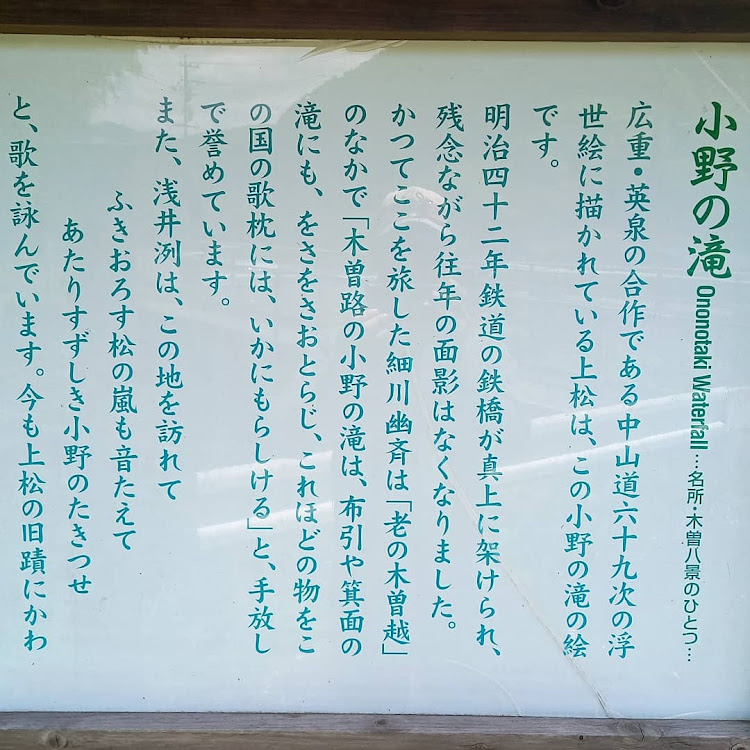 小野の滝 Ononotaki Waterfall …名所・木曽八景のひとつ…
広重・英泉の合作である中山道六十九次の浮
世絵に描かれている上松は、この小野の滝の絵
です。
明治四十二年鉄道の鉄橋が真上に架けられ、
残念ながら往年の面影はなくなりました。
かつてここを旅した細川幽斉は「老の木曽越」
のなかで「木曽路の小野の滝は、布引や箕面の
滝にも、をさをさおとらじ、これほどの物をこ
の国の歌枕には、いかにもらしける」と、手放し
で誉めています。
また、浅井洌は、この地を訪れて
ふきおろす松の嵐も音たえて
あたりすずしき小野のたきつせ
と、歌を詠んでいます。今も上松の旧蹟にかわ